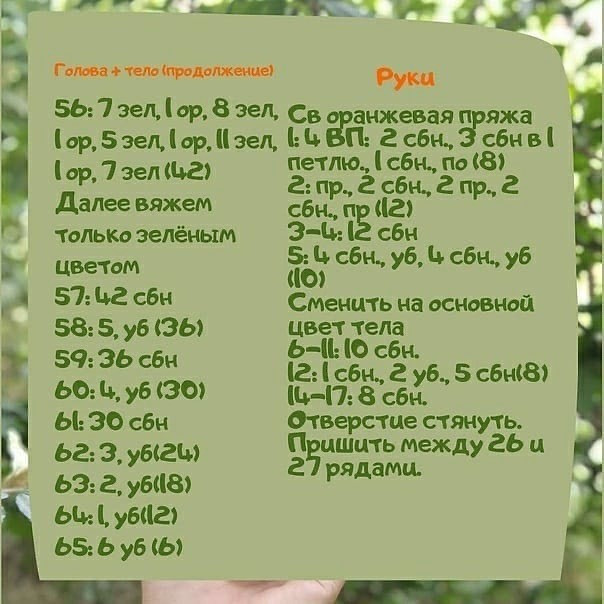 Голова + тело (продолжение)
56: 7 зел, 1 ор, 8 зел,
1 ор, 5 зел, 1 ор, 11 зел,
1 ор, 7 зел (42)
Далее вяжем
только зелёным
цветом
57: 42 сбн
58: 5, уб (36)
59: 36 сбн
60: 4, уб (30)
61: 30 сбн
62: 3, уб(24)
63: 2, уб(18)
64: 1, уб(12)
65: 6 уб (6)
Руки
Св оранжевая пряжа
1: 4 ВП: 2 сбн., 3 сбн в 1
петлю., 1 сбн., по (8)
2: пр., 2 сбн., 2 пр., 2
сбн., пр (12)
3-4: 12 сбн
5: 4 сбн., уб, 4 сбн., уб
(10)
Сменить на основной
цвет тела
6-11: 10 сбн.
12: 1 сбн., 2 уб., 5 сбн(8)
14-17: 8 сбн.
Отверстие стянуть.
Пришить между 26 и
27 рядами.